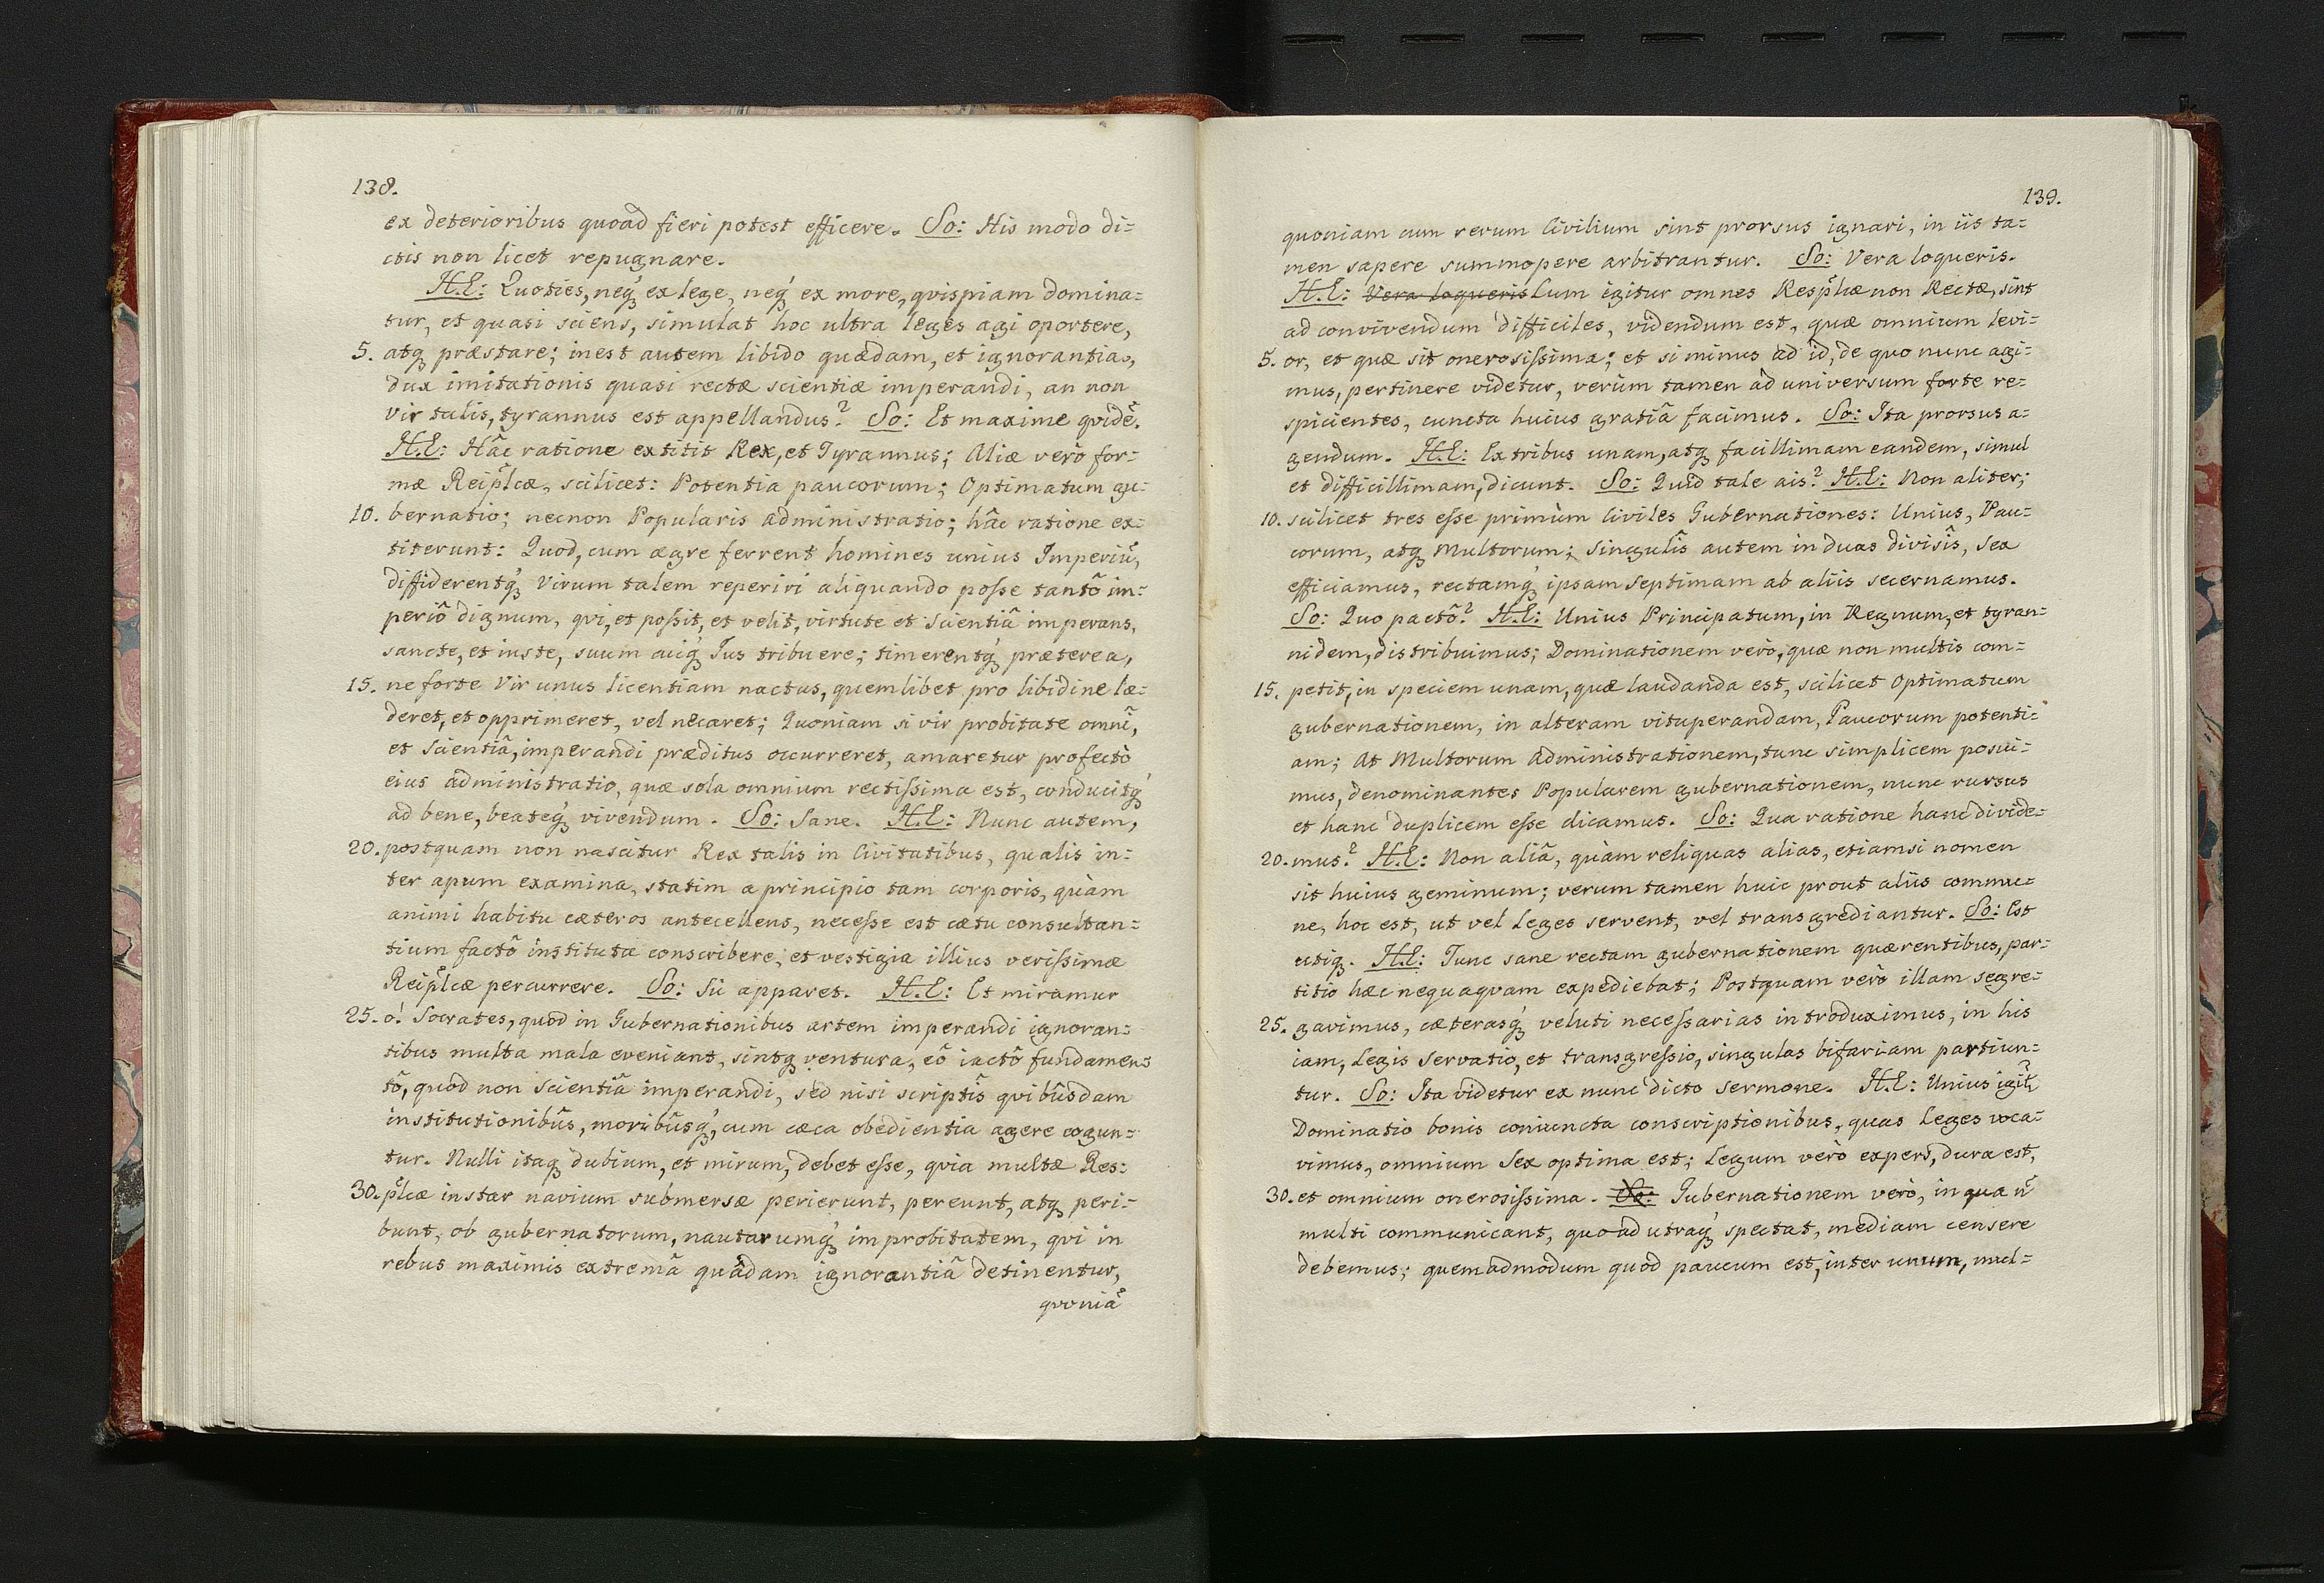 138.
ex deterioribus quoad fieri potest efficere. So: His modo di=
ctis non licet repugnare.
H.E: Quoties, neq́ꝫ ex lege, neq́ꝫ ex more, qvispiam domina=
tur, et quasi sciens, simulat hoc ultra leges agi oportere,
5. atqꝫ præstare; inest autem libido quædam, et ignorantia,
dux imitationis quasi rectæ scientiæ imperandi, an non
vir talis, tyrannus est appellandus? So: Et maxime qvidẽ.
H.E: Hâc ratione extitit Rex, et Tyrannus; Aliæ verò for=
mæ Reip̃lcæ, scilicet: Potentia paucorum; Optimatum gu=
10. bernatio; necnon Popularis administratio; hâc ratione ex=
titerunt: Quod, cum ægre ferrent homines unius Imperiũ,
diffiderentq́ꝫ Virum talem reperiri aliquando poſse tantô im=
periô dignum, qvi, et poſsit, et velit, virtute et scientiâ imperans,
sancte, et iuste, suum cuiq́ꝫ Ius tribuere; timerentq́ꝫ præterea,
15. ne forte Vir unus licentiam nactus, quemlibet pro libidine læ=
deret, et opprimeret, vel necaret; Quoniam si vir probitate omnî,
et scientiâ, imperandi præditus occurreret, amaretur profectò
eius administratio, quæ sola omnium rectiſsima est, conducitq́ꝫ
ad bene, beateq́ꝫ vivendum. So: Sane. H.E: Nunc autem,
20. postquam non nascitur Rex talis in Civitatibus, qualis in=
ter apum examina, statim a principio tam corporis, quàm
animi habitu cæteros antecellens, neceſse est cætu consultan=
tium factô instituta conscribere, et vestigia illius veriſsimæ
Reip̃lcæ percurrere. So: Sic apparet. H.E: Et miramur
25. ô! Socrates, quod in Gubernationibus artem imperandi ignoran=
tibus multa mala eveniant, sintqꝫ ventura, eô iactô fundamen=
tô, quod non scientiâ imperandi, sed nisi scriptîs qvibûsdam
institutionibûs, moribûsq́ꝫ, cum cæca obedientia agere cogun=
tur. Nulli itaqꝫ dubium, et mirum, debet eſse, qvia multæ Res=
30. p̃lcæ instar navium submersæ perierunt, pereunt, atqꝫ peri=
bunt, ob gubernatorum, nautarumq́ꝫ improbitatem, qvi in
rebus maximis extremâ quâdam ignorantiâ detinentur,
qvoniã
139.
quoniam cum rerum Civilium sint prorsus ignari, in iis ta=
men sapere summopere arbitrantur. So: Vera loqueris.
H.E: Vera loqueris Cum igitur omnes Resp̃lcæ non Rectæ, sint
ad convivendum difficiles, videndum est, quæ omnium levi=
5. or, et quæ sit onerosiſsima; et si minus ad id, de quo nunc agi=
mus, pertinere videtur, verùm tamen ad universum forte re=
spicientes, cuncta huius gratiâ facimus. So: Ita prorsus a=
gendum. H.E: Ex tribus unam, atqꝫ facillimam eandem, simul
et difficillimam, dicunt. So: Quid tale ais? H.E: Non aliter;
10. scilicet tres eſse primùm Civiles Gubernationes: Unius, Pau=
corum, atqꝫ Multorum; singulîs autem in duas divisîs, sex
efficiamus, rectamq́ꝫ ipsam septimam ab aliis secernamus.
So: Quo pactô? H.E: Unius Principatum, in Regnum, et tyran=
nidem, distribuimus; Dominationem verò, quæ non multis com=
15. petit, in speciem unam, quæ laudanda est, scilicet Optimatum
gubernationem, in alteram vituperandam, Paucorum potenti=
am; At Multorum administrationem, tunc simplicem posui=
mus, denominantes Popularem gubernationem, nunc rursus
et hanc duplicem eſse dicamus. So: Qua ratione hanc divide=
20. mus? H.E: Non aliâ, quàm reliquas alias, etiamsi nomen
sit huius geminum; verum tamen huic prout aliis commu=
ne, hoc est, ut vel Leges servent, vel transgrediantur. So: Est
utiqꝫ. H.E: Tunc sane rectam gubernationem quærentibus, par=
titio hæc nequaqvam expediebat; Postquam verò illam segre=
25. gavimus, cæterasq́ꝫ veluti neceſsarias introduximus, in his
iam, Legis servatio, et transgreſsio, singulas bifariam partiun=
tur. So: Ita videtur ex nunc dicto sermone. H.E: Unius igit̃
Dominatio bonis coniuncta conscriptionibus, quas Leges voca=
vimus, omnium sex optima est; Legum verò expers, dura est,
30. et omnium onerosiſsima. So: Gubernationem verò, in qua ñ
multi communicant, quo ad utraq́ꝫ spectat, mediam censere
debemus; quemadmodum quod paucum est, inter unum, mul=